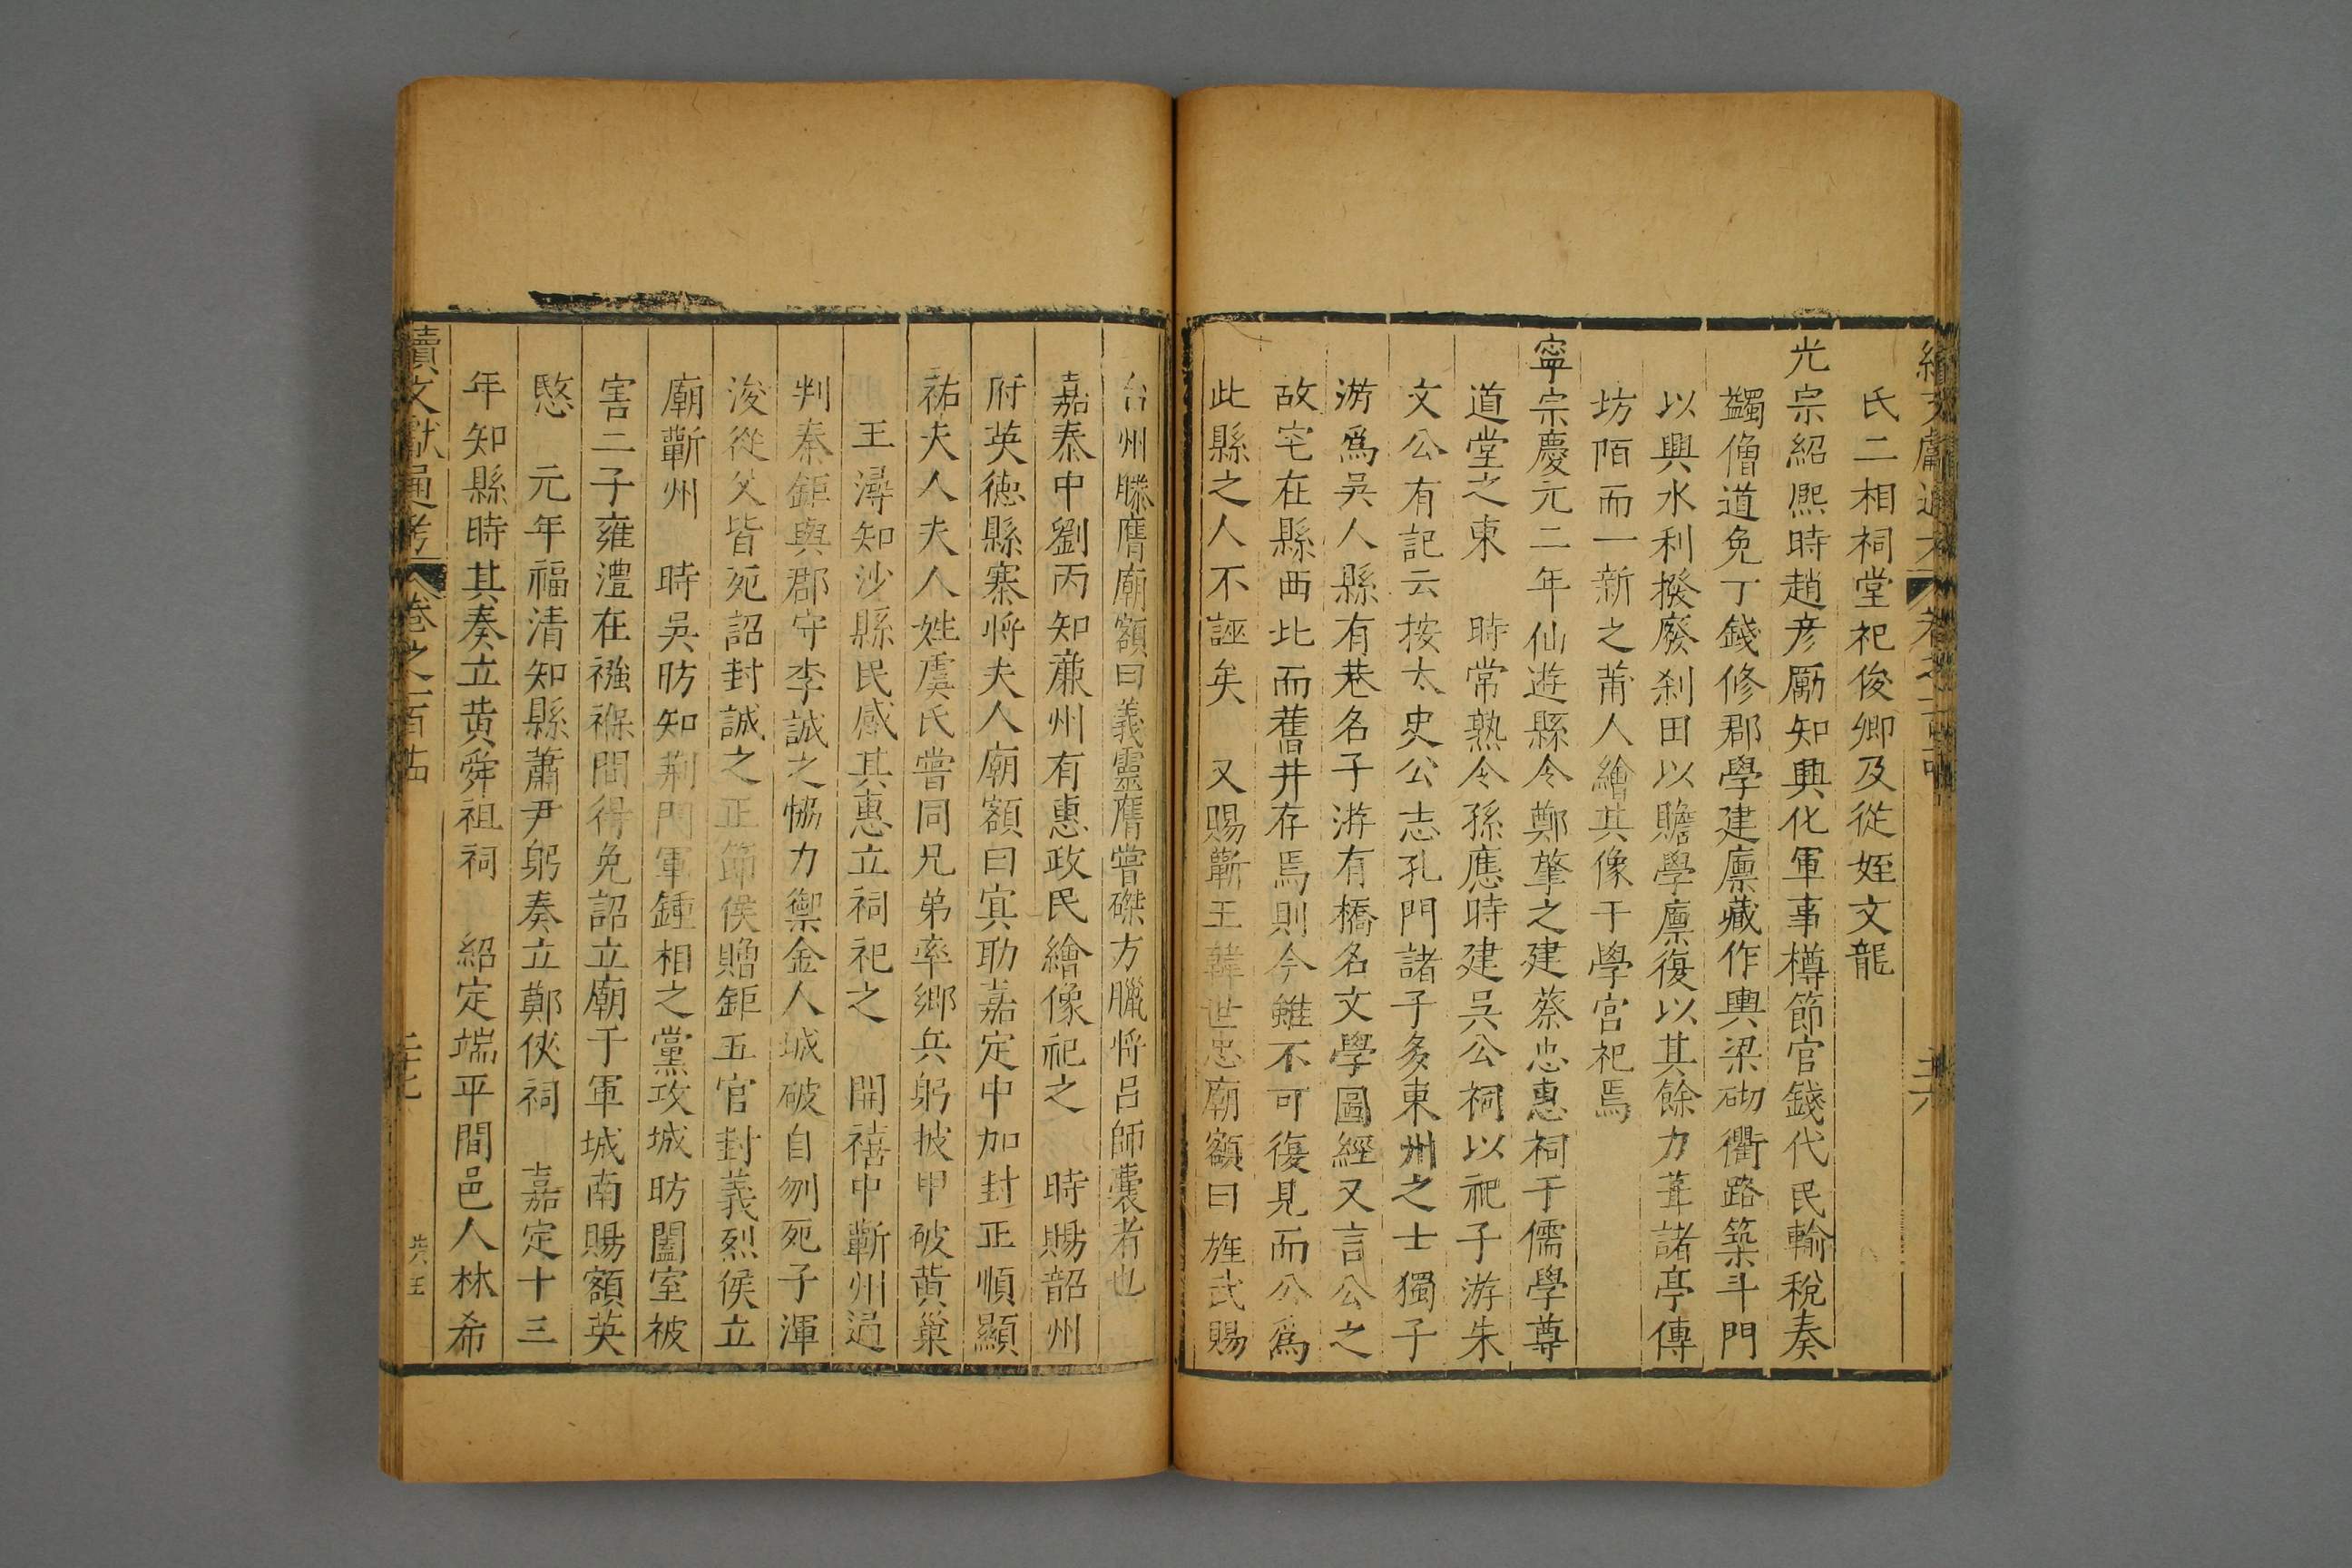 氏二相祠堂祀俊卿及從姪文龍
光宗紹熙時趙彥勵知興化軍事樽節官錢代民輸稅奏
蠲僧道免丁錢修郡學建廪藏作輿梁砌衢路築斗門
以興水利撥廢刹田以贍學廪復以其餘力葺諸亭傳
坊陌而一新之莆人繪其像于學宮祀焉
寧宗慶元二年仙遊縣令鄭肇之建蔡忠惠祠于儒學尊
道堂之東 時常熟令孫應時建吳公祠以祀子游朱
文公有記云按太史公志孔門諸子多東州之士獨子
游爲吳人縣有巷名子游有橋名文學圖經又言公之
故宅在縣西北而舊井存焉則今雖不可復見而公爲
此縣之人不誣矣 又賜蘄王韓世忠廟額曰旌武賜
台州滕膺廟額曰義靈膺嘗磔方臘將呂師囊者也
嘉泰中劉丙知廉州有惠政民繪像祀之 時賜韶州
府英德縣寨將夫人廟額曰寘助嘉定中加封正順顯
祐夫人夫人姓虞氏嘗同兄弟率鄉兵躬披甲破黃巢
王潯知沙縣民感其惠立祠祀之 開禧中蘄州通
判秦鉅與郡守李誠之恊力禦金人城破自刎死子渾
浚從父皆死詔封誠之正節侯贈鉅五官封義烈侯立
廟蘄州 時吳昉知荆門軍鍾相之黨攻城昉闔室被
害二子雍澧在襁褓間得免詔立廟于軍城南賜額英
愍 元年福清知縣蕭尹躬奏立鄭俠祠 嘉定十三
年知縣時其奏立黃舜祖祠 紹定端平間邑人林希
續文獻通考 卷之一百十五 二十七